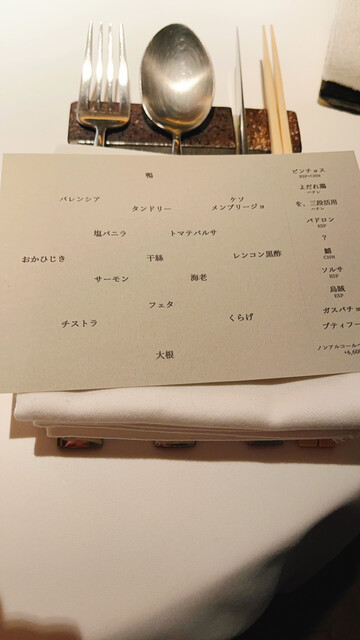 鴨
バレンシア
タンドリー
ケソ
メンブリージョ
塩バニラ
トマテバルサ
おかひじき
干絲
レンコン黒酢
サーモン
海老
フェタ
チストラ
くらげ
大根
ピンチョス
ESP+CHN
よだれ鶏
ハチン
を、三段活用
ハチン
パドロン
ESP
?
CHN
ソルサ
ESP
烏賊
ESP
ガスパチョ
プティフー
ノンアルコール
+6,60